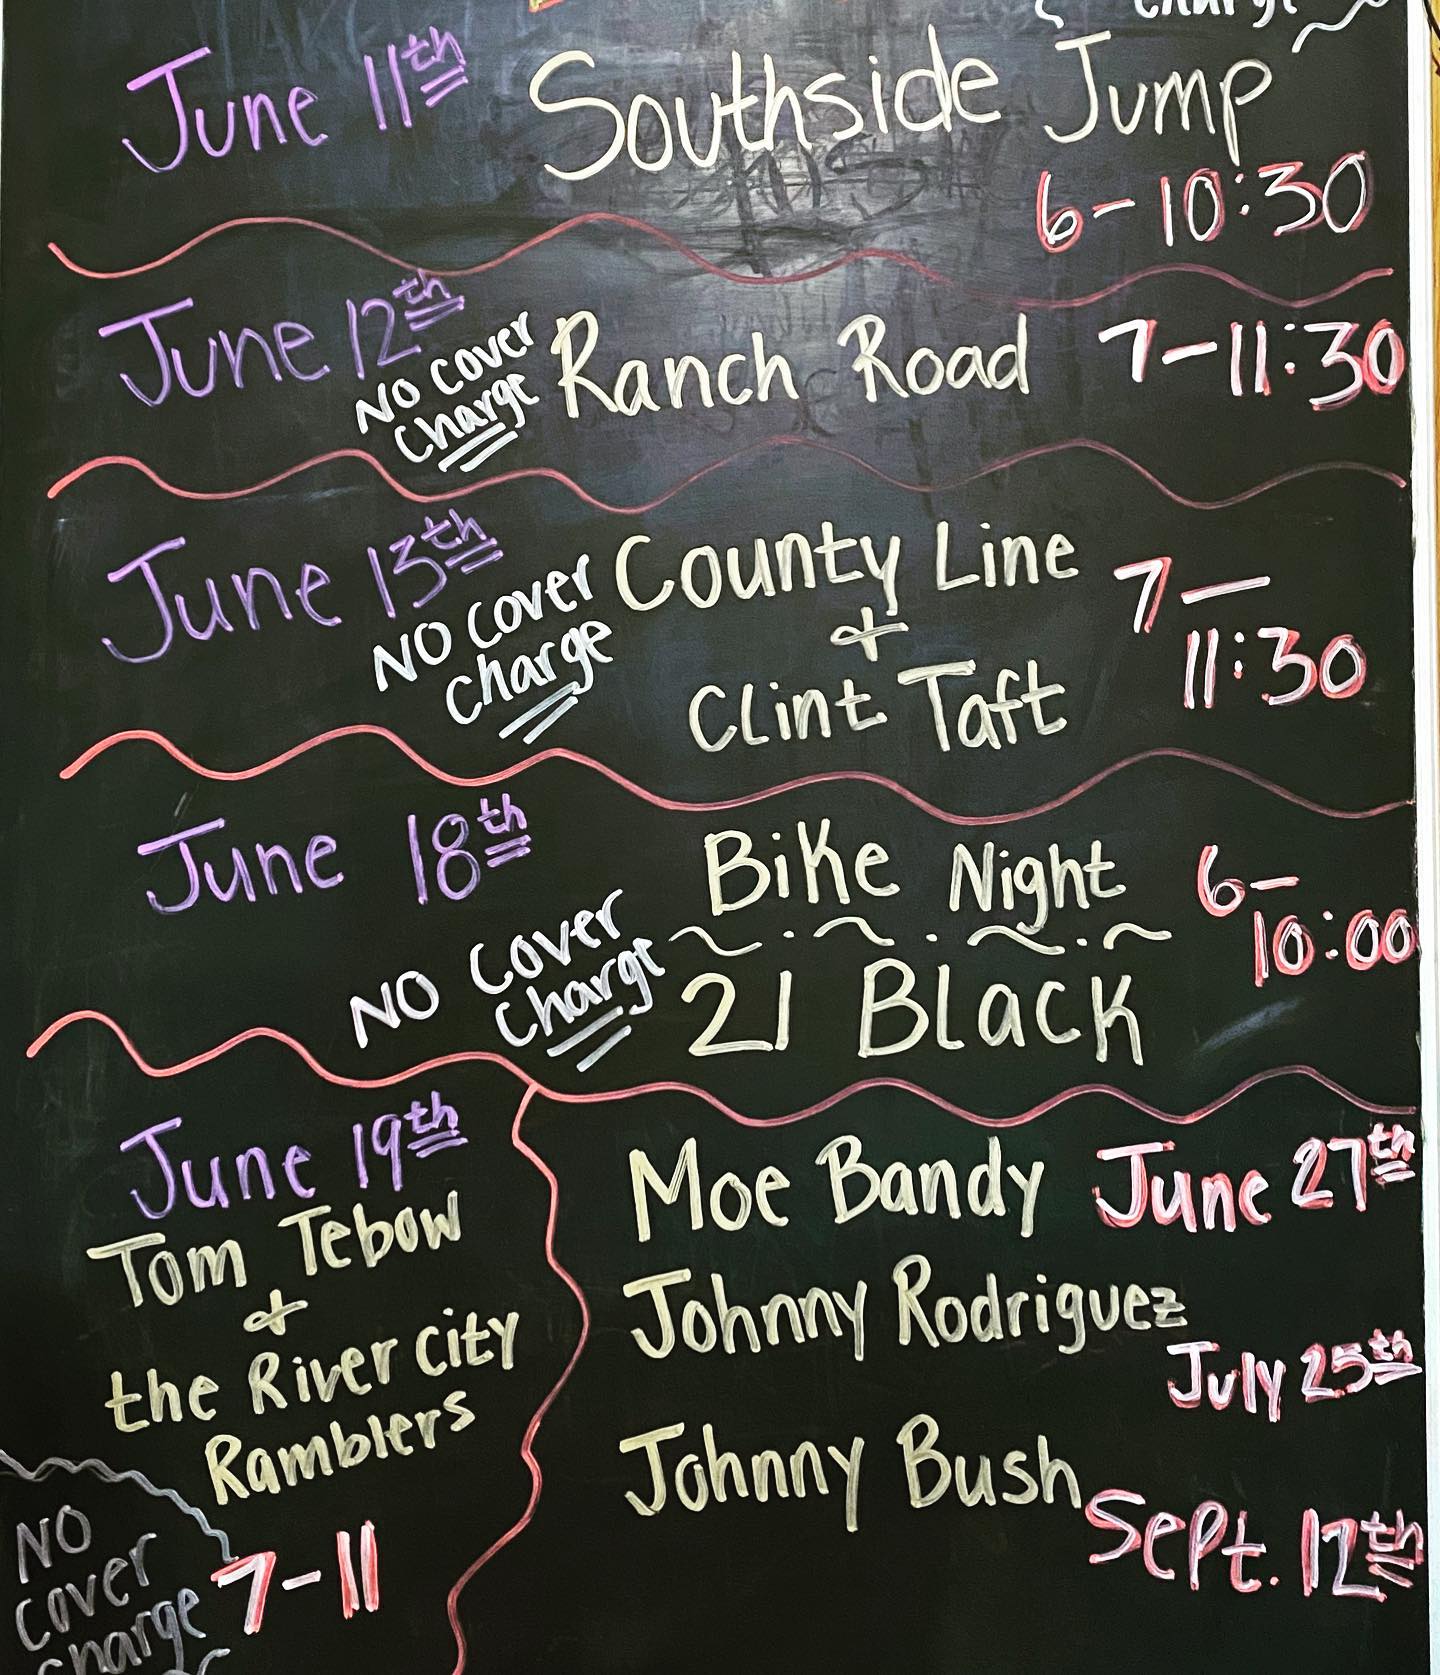 charge
June 11th Southside Jump
6-10:30
June 12th
No cover
charge
Ranch Road 7-11:30
June 13th
No cover
charge
County Line
+
Clint Taft
7-
11:30
June 18th
Bike Night
6-
10:00
No Cover
Charge
21 Black
June 19th
Tom Tebow
+
the River City
Ramblers
7-11
No
cover
charge
Moe Bandy June 27th
Johnny Rodriguez
July 25th
Johnny Bush
Sept. 12th